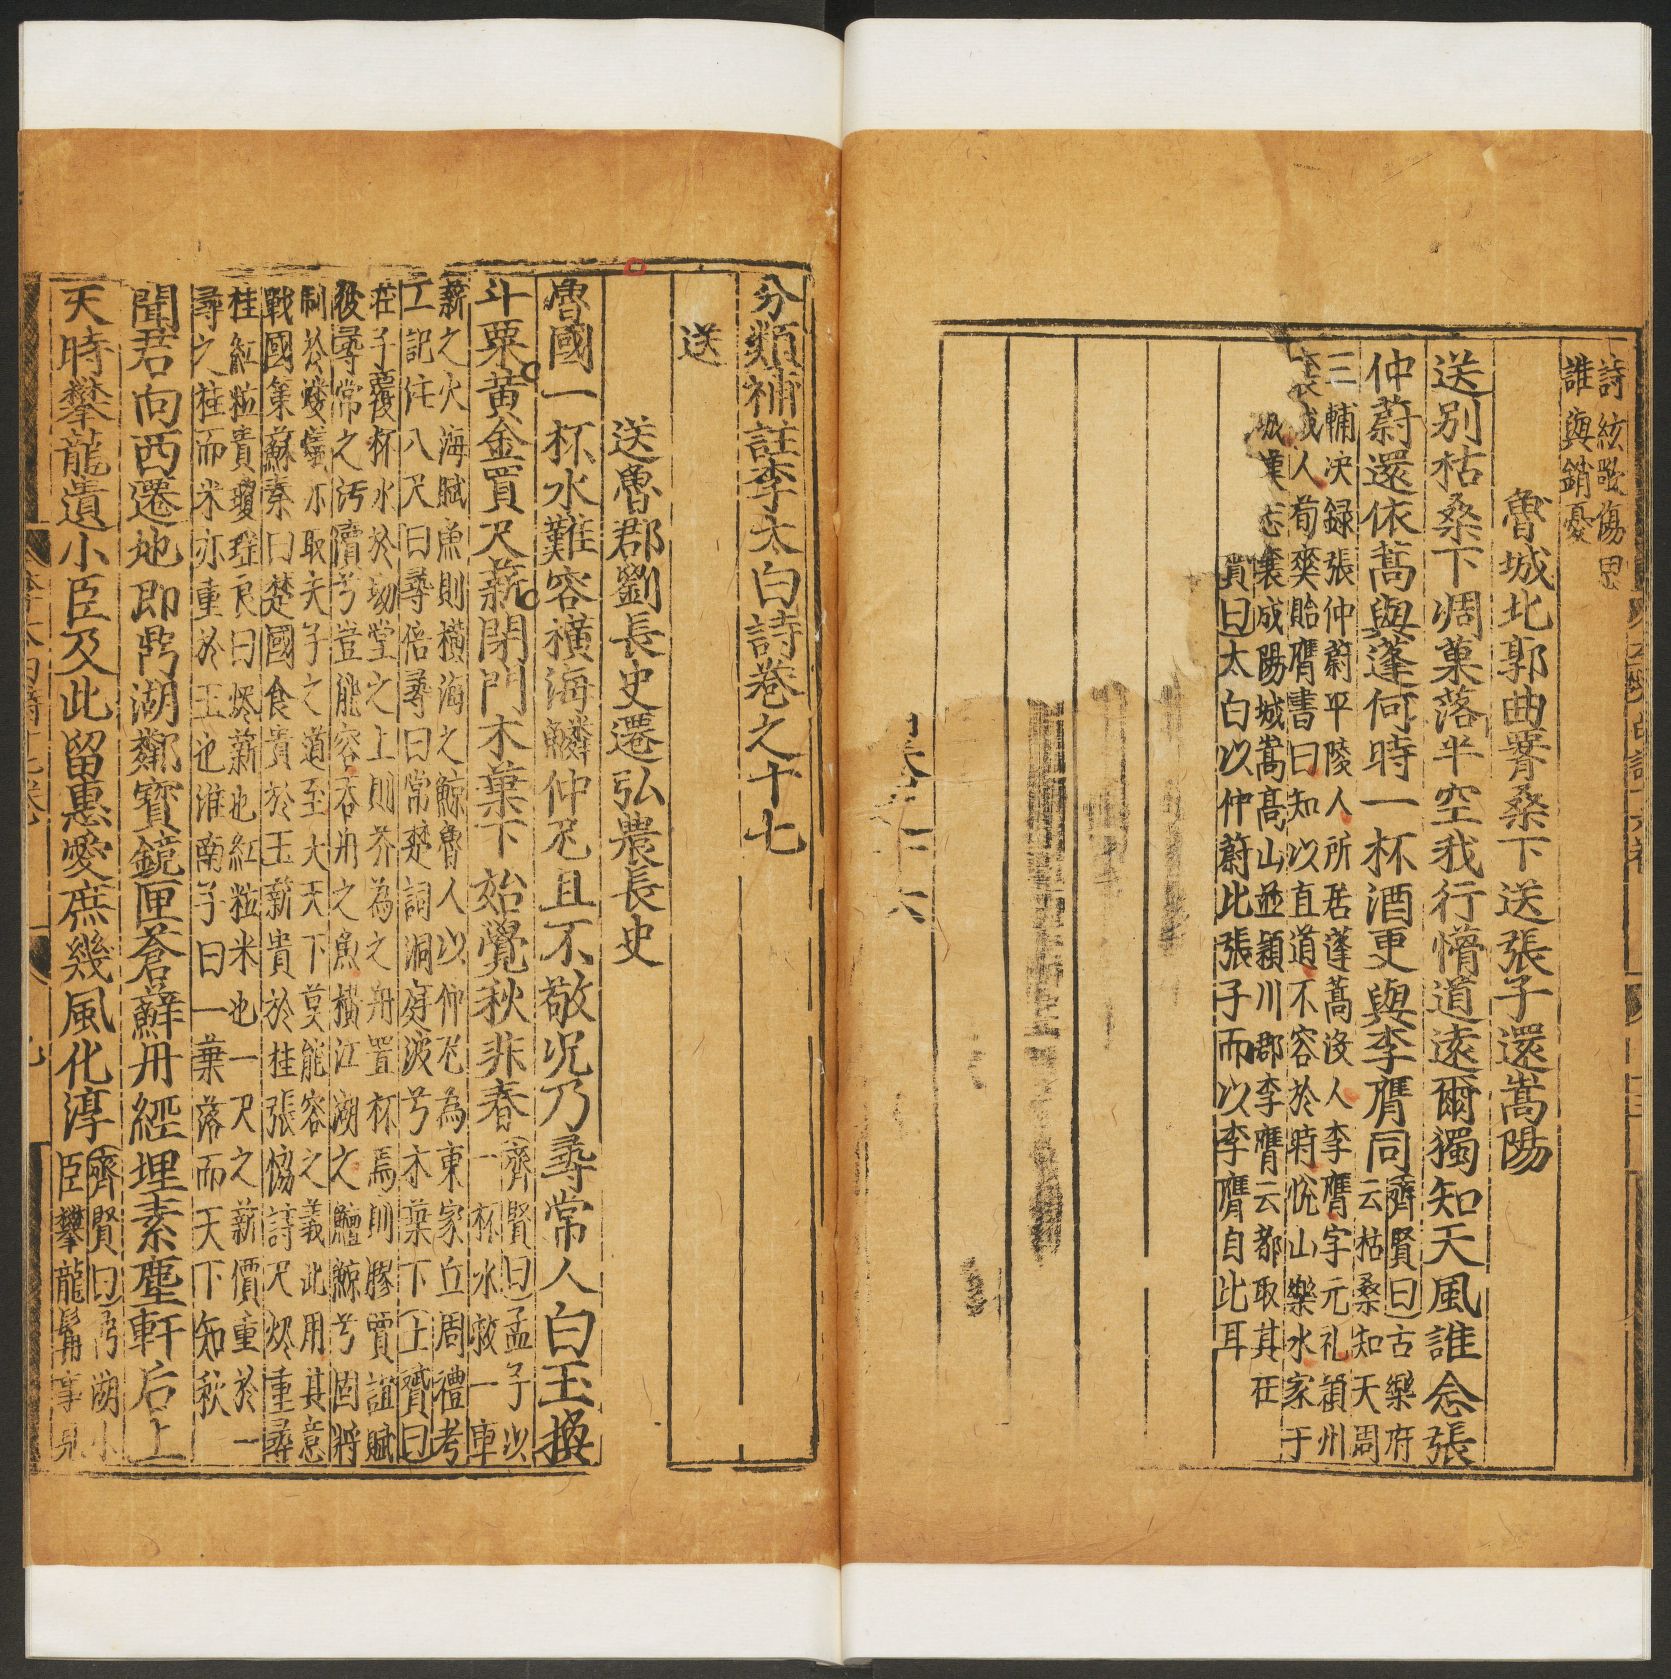 詩絃歌傷思
誰與銷憂
魯城北郭曲腎桑下送張子還嵩陽
送别枯桑下凋葉落半空我行懵道遠爾獨知天風誰念張
仲蔚還依蒿與蓬何時一杯酒更與李膺同
齊賢曰古樂府
云枯桑知天風
三輔决録張仲蔚平陵人所居蓬蒿没人李膺字元礼潁州
襄城人荀爽貽膺書曰知以直道不容於時悅山樂水家于
城漢志襄成陽城嵩高山並潁川郡李膺云都取其在
贇曰太白以仲蔚比張子而以李膺自比耳
卷之十六
分類補註李太白詩卷之十七
送
送魯郡劉長史遷弘農長史
魯國一杯水難容横海鱗仲尼且不敬况乃尋常人白玉換
斗粟黄金買尺薪閉門木葉下始覺秋非春
齊賢曰孟子以
一杯水救一車
薪之火海賦魚則橫海之鯨魯人以仲尼為東家丘周禮考
工記注八尺曰尋倍尋曰常楚詞洞庭波兮木葉下士贇曰
莊子覆杯水於坳堂之上則芥為之舟置杯焉則膠賈誼賦
彼尋常之汚瀆兮豈能容吞舟之魚橫江湖之鱣鯨兮固將
制於螻蟻亦取夫子之道至大天下莫能容之義此用其意
戰國策蘇秦曰楚國食貴於玉薪貴於桂張協詩尺燼重尋
桂紅粒貴瓊瑶良曰燼薪也紅粒米也一尺之薪價重於一
尋之桂而米亦重於玉也淮南子曰一葉落而天下知秋
聞君向西遷地即鼎湖鄰寶鏡匣蒼蘚丹經埋素塵軒后上
天時攀龍遺小臣及此留惠愛庶幾風化淳
齊賢曰鼎湖小
臣攀龍髯事見